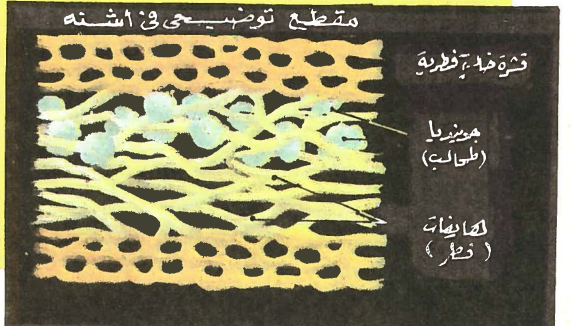 مقطع توضيحى فى اشنه
قشرة خلاية فطرية
جونيديا
(طحالب)
لهايفات
(فطر)